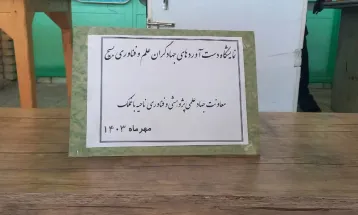 نمایشگاه دست آوردهای جهادگران علم و فناوری بسیج
معاونت جهاد علمی پژوهشی و فناوری ناحیه بانمک
مهرماه ۱۴۰۳